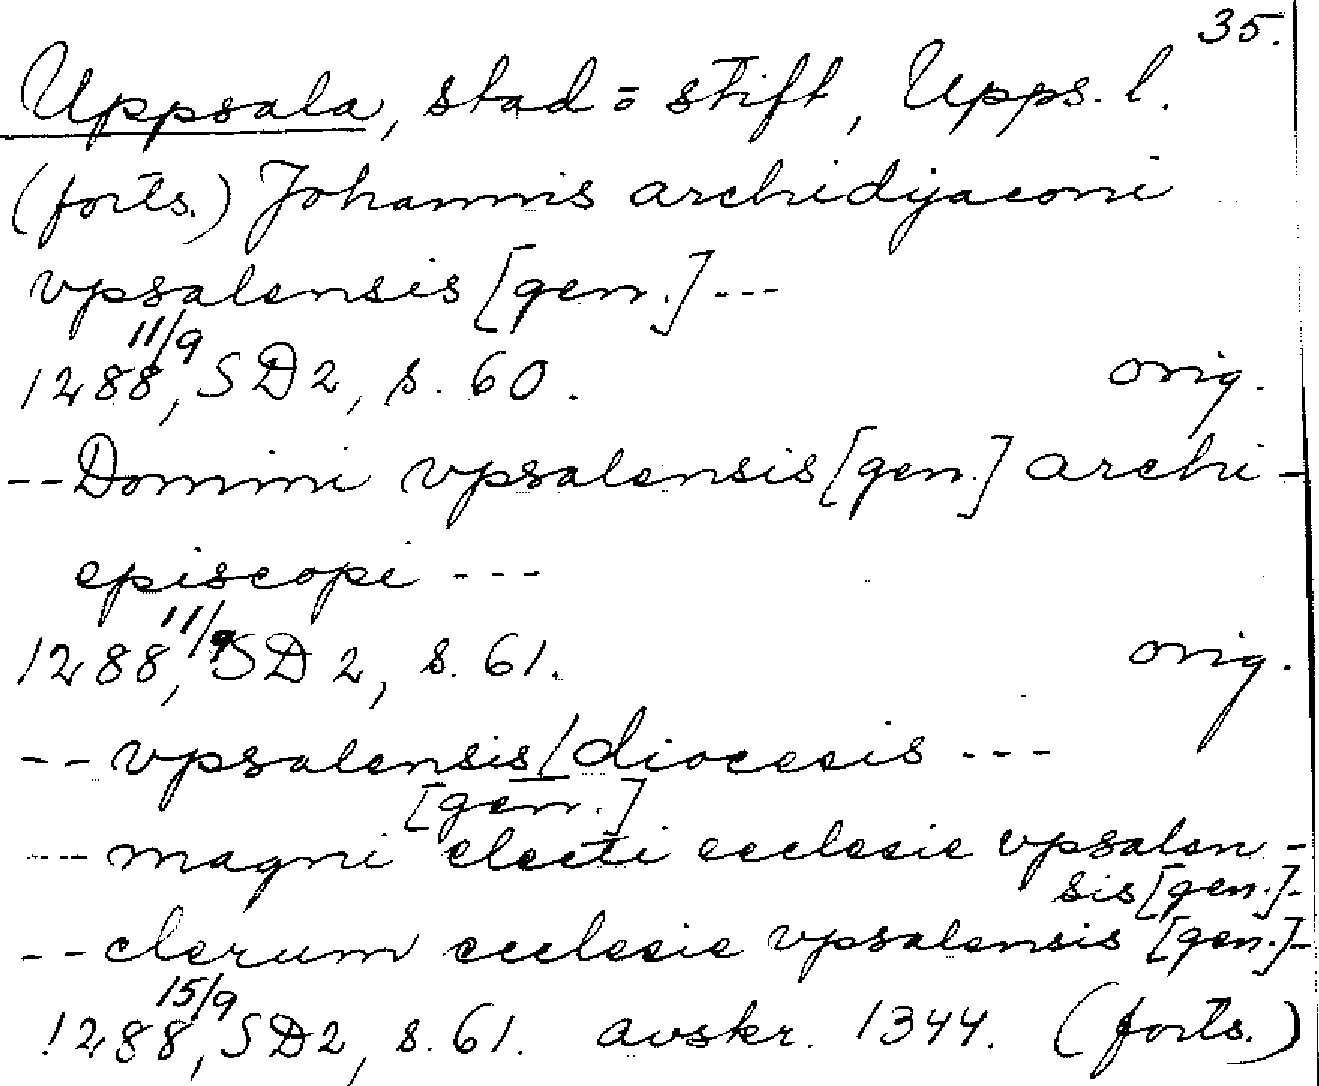 35.
Uppsala, stad = stift, Upps. l.
(forts.) Johannis archidijaconi
vpsalensis [gen.] ---
1288 11/9, SD2, s. 60. orig.
-- Domini vpsalensis [gen.] archi-
episcopi ---
1288 11/9, SD2, s. 61. orig.
-- vpsalensis / diocesis ---
[gen.]
--- magni electi ecclesie vpsalen-
sis [gen.]-
-- clerum ecclesie vpsalensis [gen.]-
1288 15/9, SD2, s. 61. avskr. 1344. (forts.)